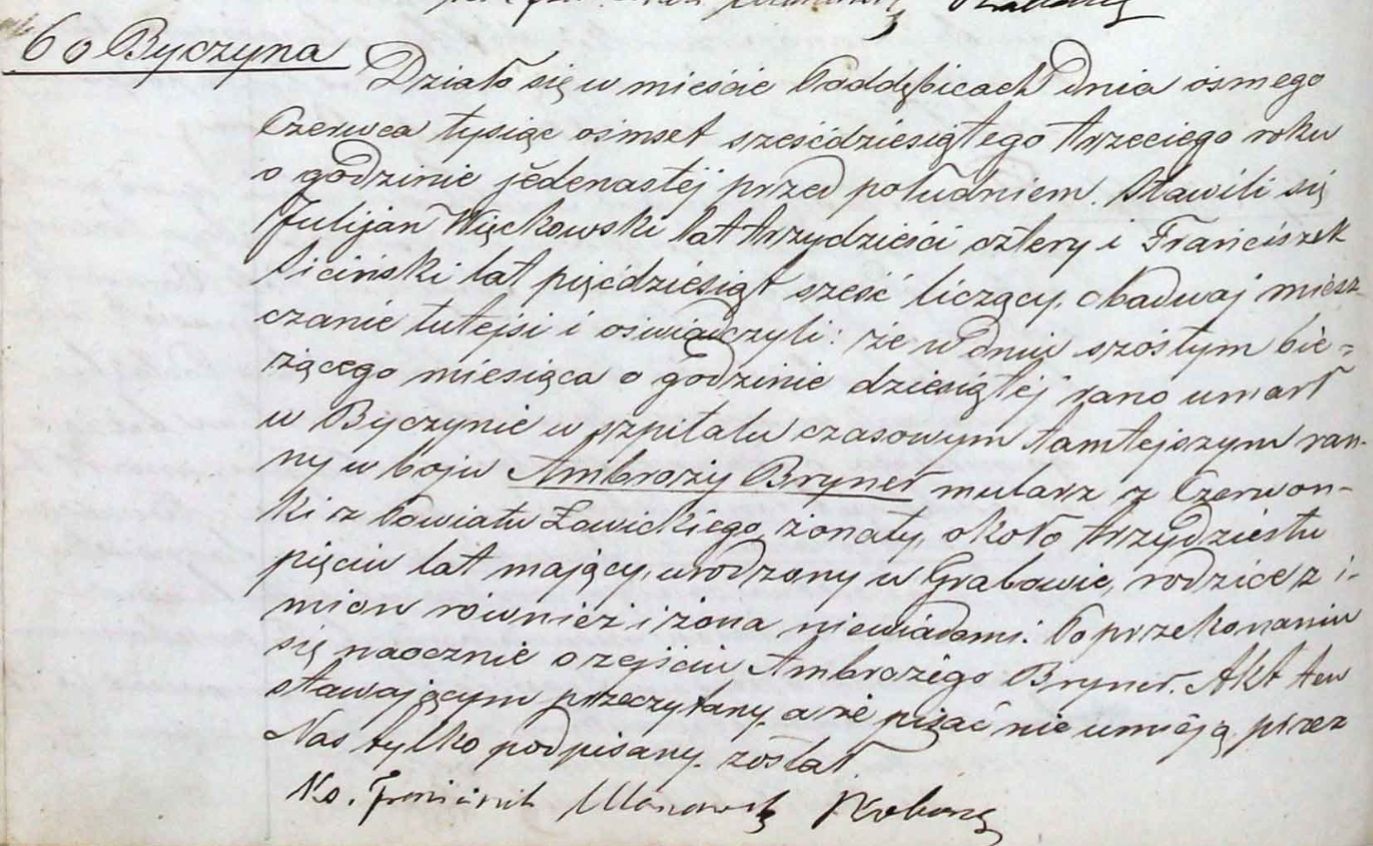 60 Byczyna
Działo się w mieście Poddębicach dnia ósmego
Czerwca tysiąc ośmset sześćdziesiątego trzeciego roku
o godzinie jedenastéj przed południem. Stawili się
Julijan Więckowski lat trzydzieści cztery i Franciszek
Siciński lat pięćdziesiąt sześć liczący, obadwaj miesz-
czanie tutejsi i oświadczyli: że w dniu szóstym bie=
żącego miesiąca o godzinie dziesiątéj rano umarł
w Byczynie w szpitalu czasowym tamtejszym ran-
ny w boju Ambroży Bryner mularz z Czerwon-
ki z Powiatu Łowickiego, żonaty, około trzydziestu
pięciu lat mający, urodzony w Grabowie, rodzice z i-
mion również i żona niewiadomi. Po przekonaniu
się naocznie o zejściu Ambrożego Bryner. Akt ten
stawającym przeczytany, a że pisać nie umieją, przez
Nas tylko podpisany został.
Ks. Franciszek Proboszcz